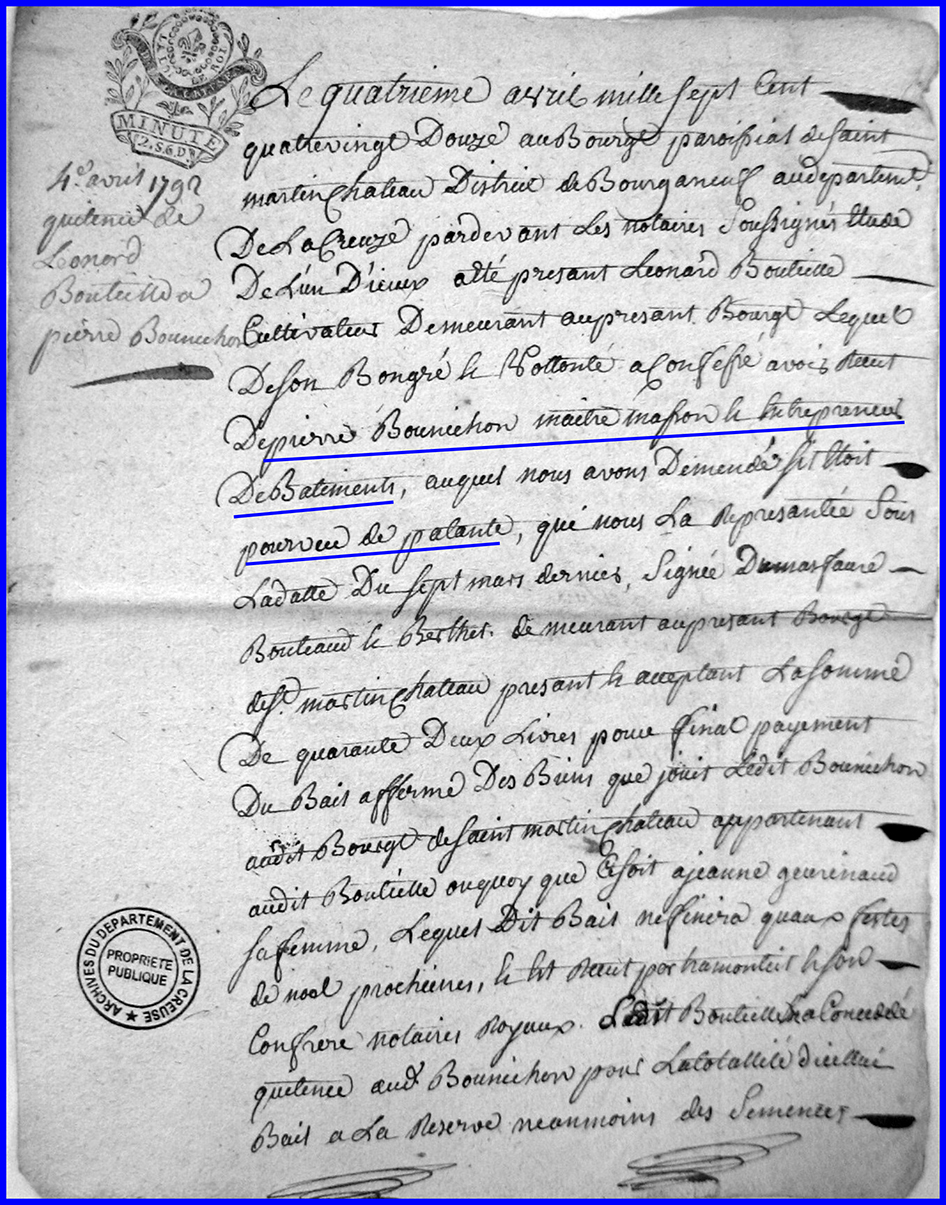 LA LOI ET LE ROI
MINUTE
2. S. 6 D.
4e. avril 1792
quitence de
Leonord
Bouteille a
pierre Bounichon
Le quatrieme avril mille sept Cent
quatrevingt Douze au Bourgt paroissial de saint
martin Chateau District de Bourganeuf au departemt.
De La Creuze pardevant Les notaires Soussignés
De L'un D'ieux atté presant Leonard Boutielle
Cultivateur Demeurant au presant Bourgt Lequel
De son Bongré & Vollonté a Confessé avoir Recut
De pierre Bounichon maitre masson & Entrepreneur
De Batiments, auquel nous avons Demendé sil Etoit
pourveu de patante, qui nous La Represantée Sous
Ladatte Du sept mars dernier, Signée Dumasfaure
Bouteaud & Berthet. demeurant au presant Bourgt
de St. martin Chateau presant & aceptant La somme
De quarante Deux Livres pour final payement
Du Bail afferme Des Biens que jouit Ledit Bounichon
audit Bourgt de saint martin Chateau appartenant
audit Boutielle ou quoy que Cesoit a jeanne
sa femme, Lequel Dit Bail ne finira quaux festes
de noel procheines, & Est Recut par tramonteil & son
Confrere notaires Royaux. Ledit Boutielle Concedelé
quitence audt. Bounichon pour La totallité dicelluí
Bail a La Reserve neanmoins des Semences
ARCHIVES DU DEPARTEMENT DE LA CREUSE
PROPRIETE
PUBLIQUE